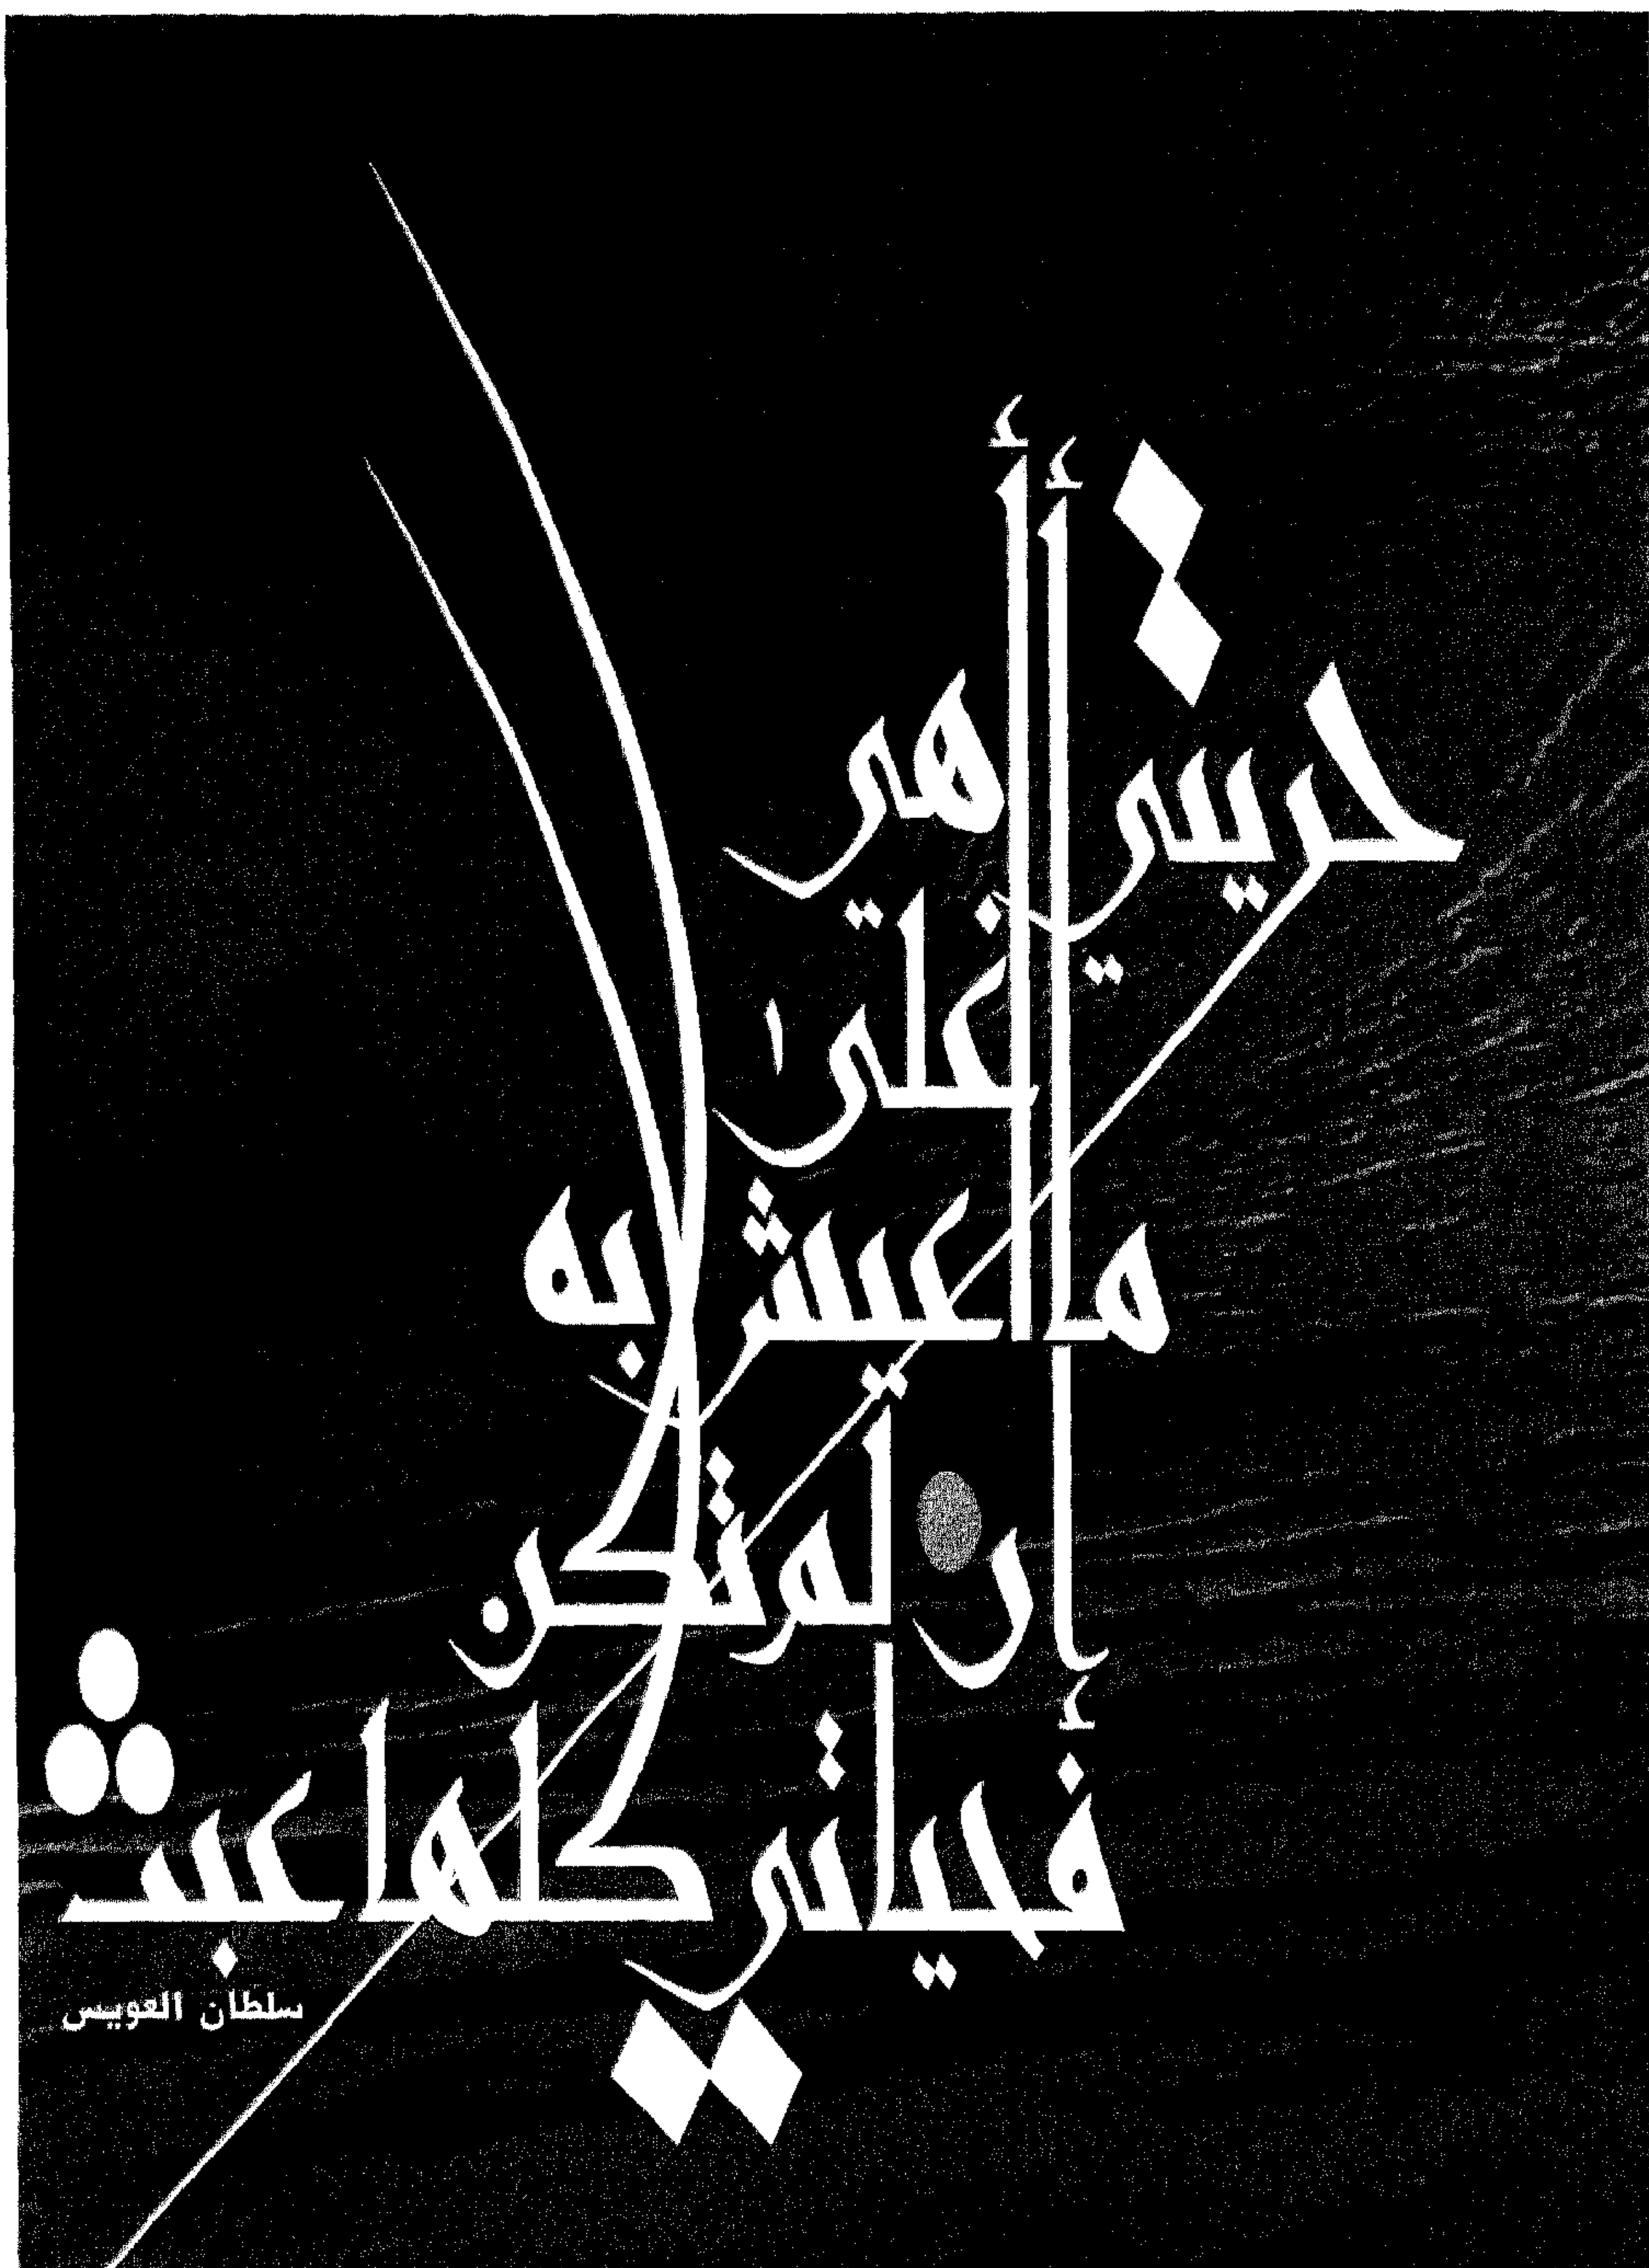 حريتي هي
أغلى
ما أعيش به
إن لم تكن
فحياتي كلها عبث
سلطان العويس